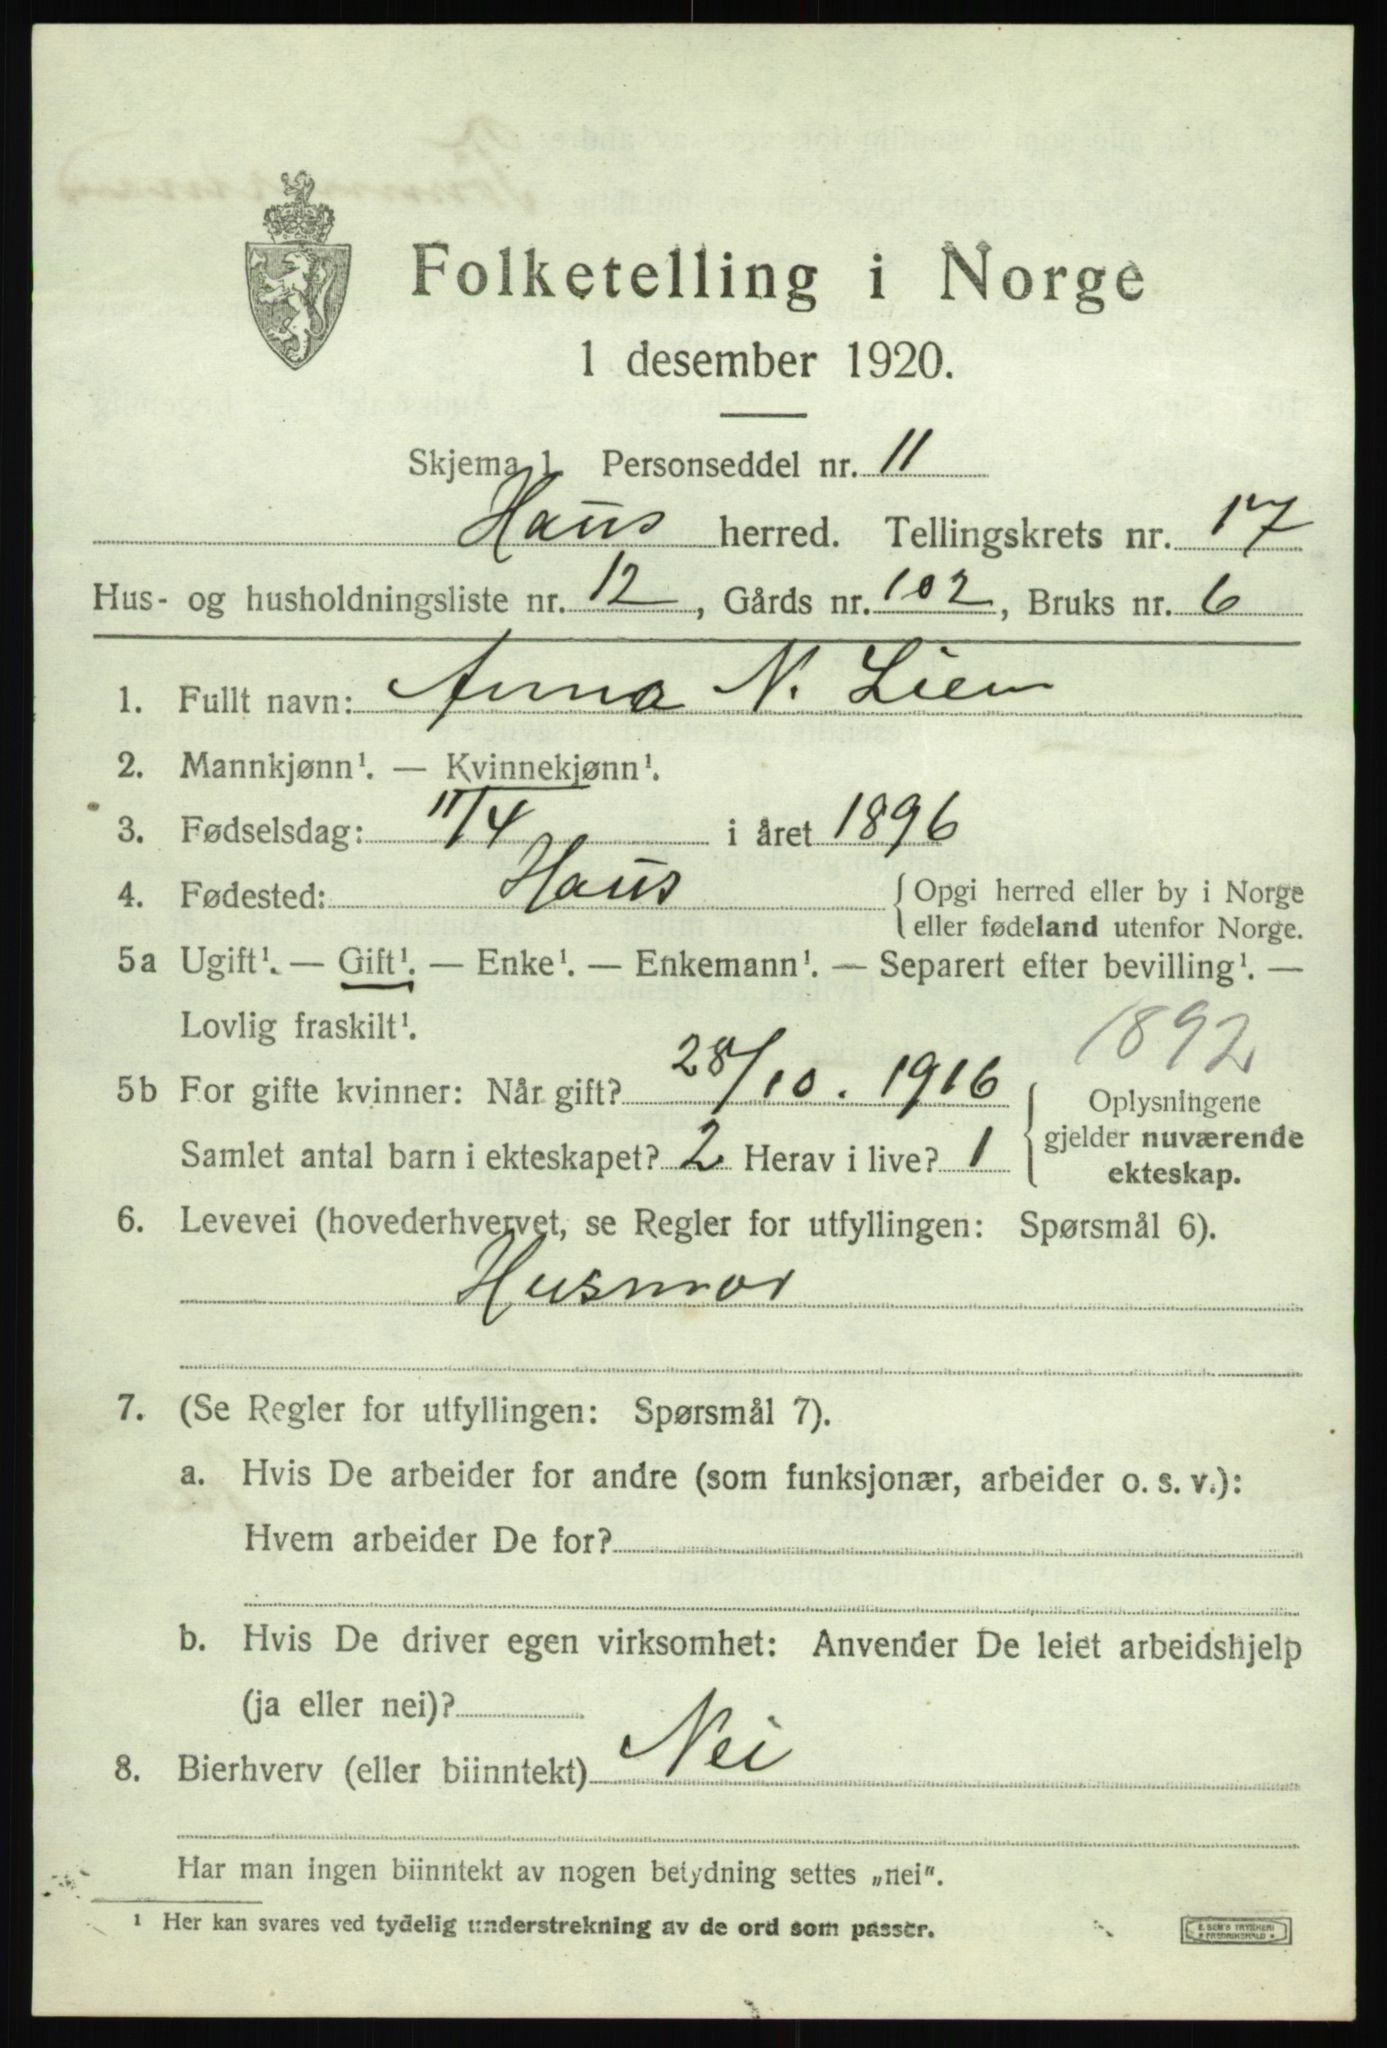 Folketelling i Norge
1 desember 1920.
Skjema 1. Personseddel nr. 11
Haus herred. Tellingskrets nr. 17
Hus- og husholdningsliste nr. 12, Gårds nr. 102, Bruks nr. 6
1. Fullt navn: Anna N. Lien
2. Mannkjønn¹. — Kvinnekjønn¹.
3. Fødselsdag: 11/4 i året 1896
4. Fødested: Haus { Opgi herred eller by i Norge
eller fødeland utenfor Norge.
5a Ugift¹. — Gift¹. — Enke¹. — Enkemann¹. — Separert efter bevilling¹. —
Lovlig fraskilt¹.
1892
5b For gifte kvinner: Når gift? 28/10. 1916
Samlet antal barn i ekteskapet? 2 Herav i live? 1
Oplysningene
gjelder nuværende
ekteskap.
6. Levevei (hovederhvervet, se Regler for utfyllingen: Spørsmål 6).
Husmor
7. (Se Regler for utfyllingen: Spørsmål 7).
a. Hvis De arbeider for andre (som funksjonær, arbeider o. s. v.):
Hvem arbeider De for?
b. Hvis De driver egen virksomhet: Anvender De leiet arbeidshjelp
(ja eller nei)?
8. Bierhverv (eller biinntekt) Nei
Har man ingen biinntekt av nogen betydning settes „nei".
¹ Her kan svares ved tydelig understrekning av de ord som passer.
E. SEM'S TRYKKERI
FREDRIKSHALD